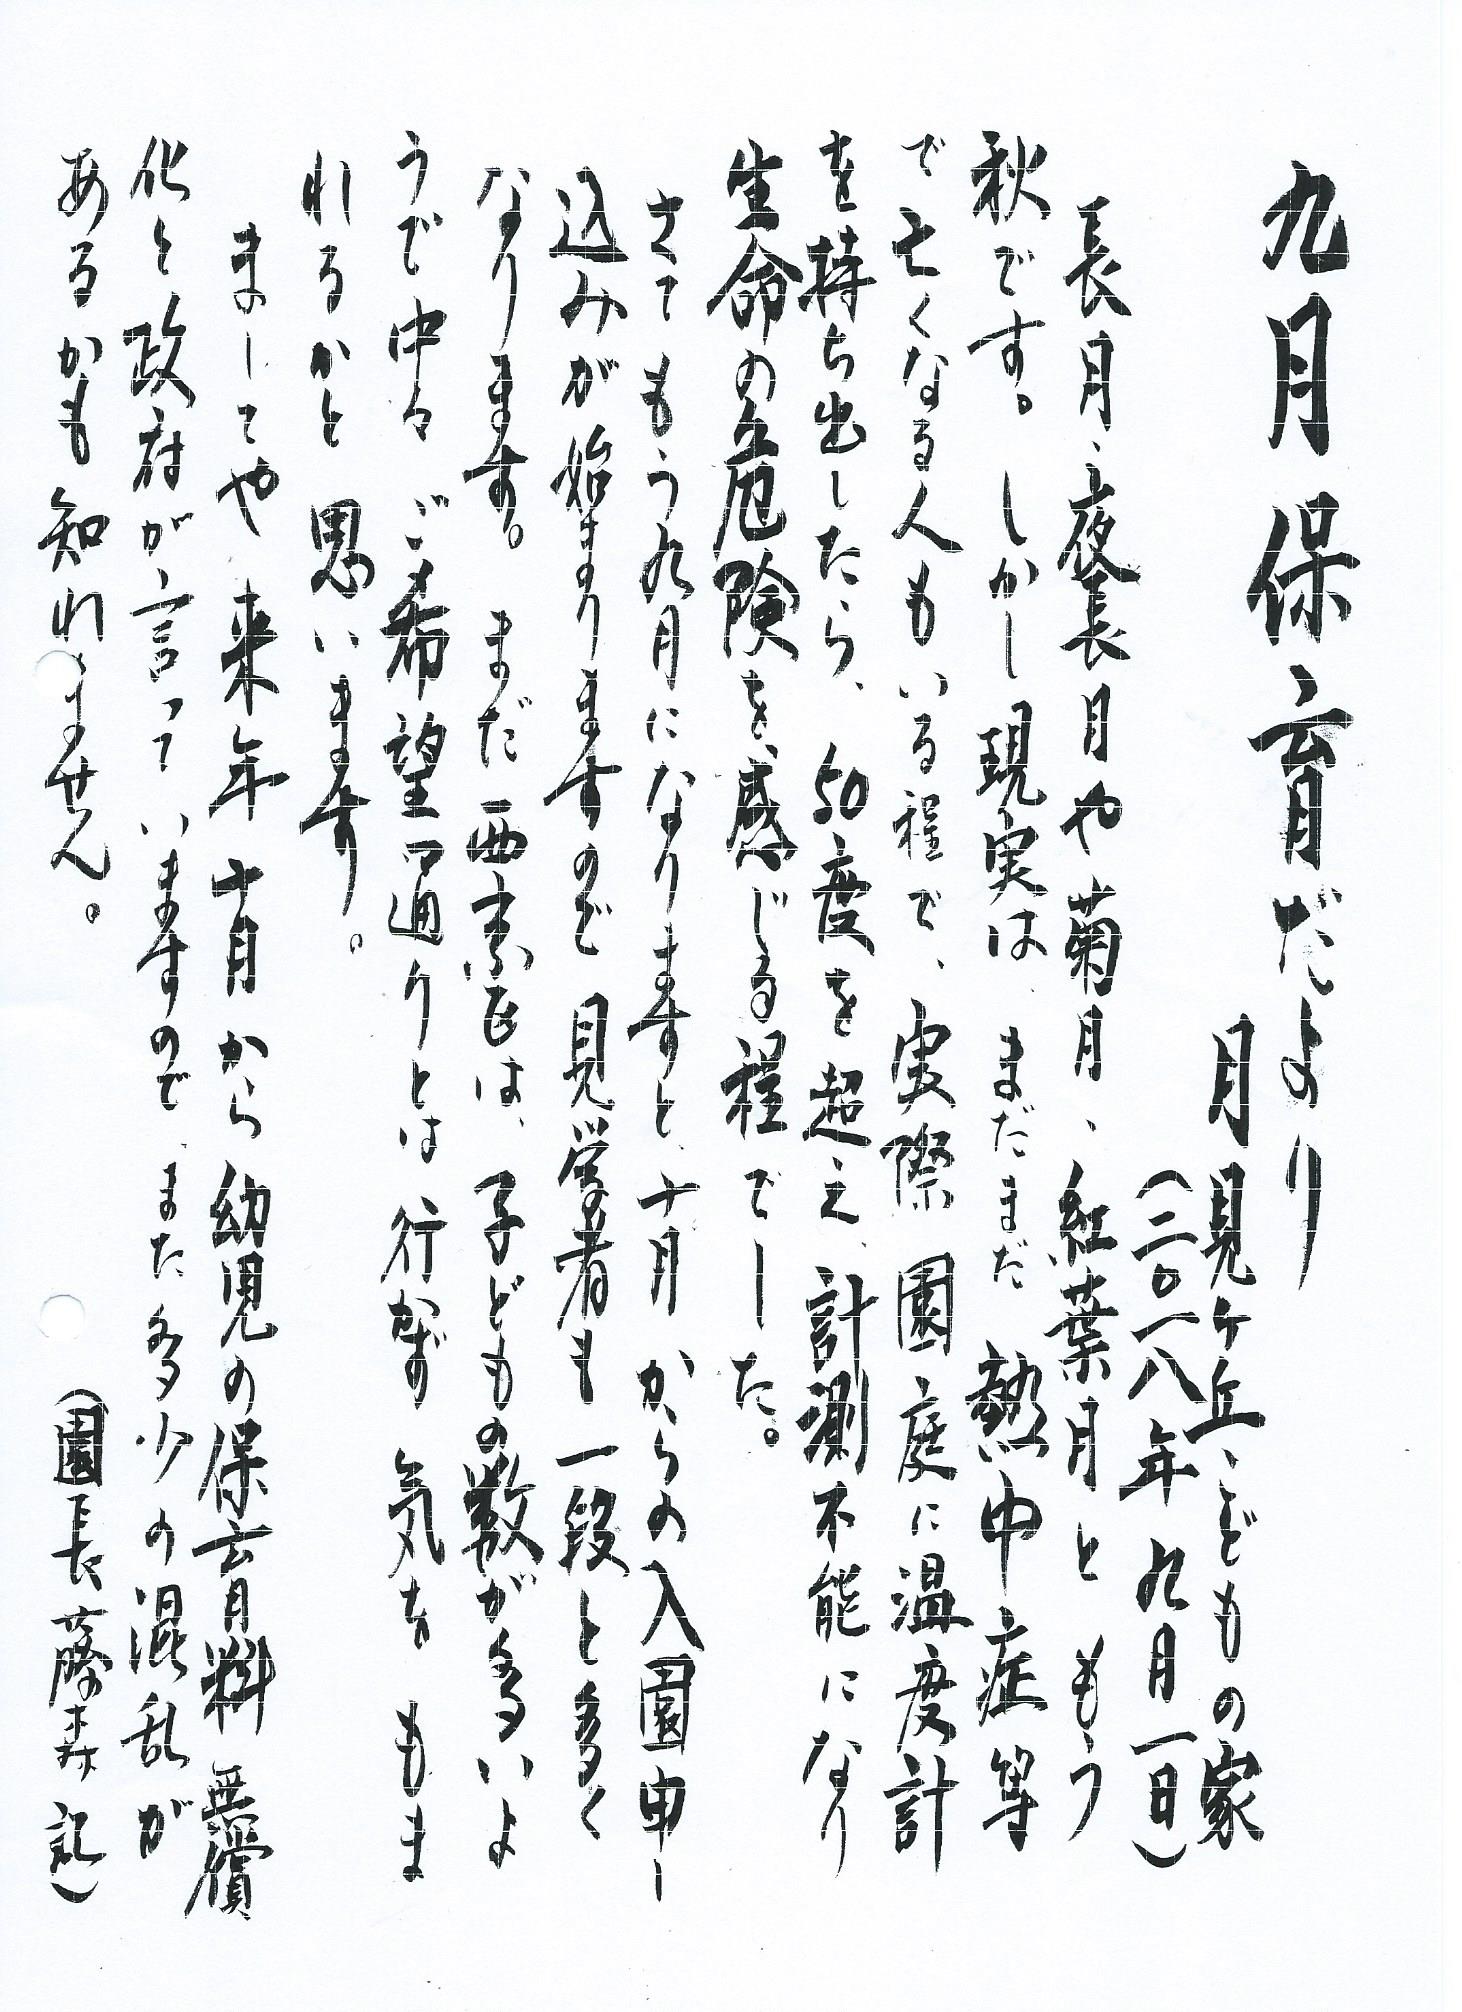 九月保育だより
月見ケ丘こどもの家
(二〇一八年九月一日)
長月、夜長月や菊月、紅葉月ともう
秋です。しかし現実は、まだまだ熱中症等
で亡くなる人もいる程で、実際園庭に温度計
を持ち出したら、50度を超え、計測不能になり
生命の危険を感じる程でした。
さてもう九月になりますと、十月からの入園申し
込みが始まりますので見学者も一段と多く
なります。まだ西京区は、子どもの数が多いよ
うで中々ご希望通りとは行かず気をもま
れるかと思います。
ましてや来年十月から幼児の保育料無償
化と政府が言っていますので、また多少の混乱が
あるかも知れません。
(園長藤森記)